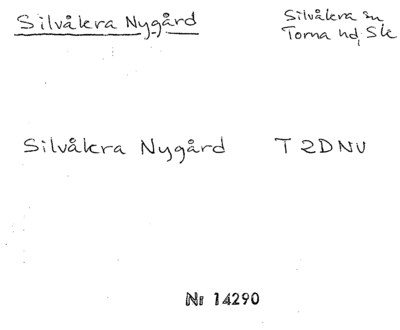 Silvåkra Nygård
Silvåkra sn
Torna hd, Sk
Silvåkra Nygård T 2DNV
Nr 14290